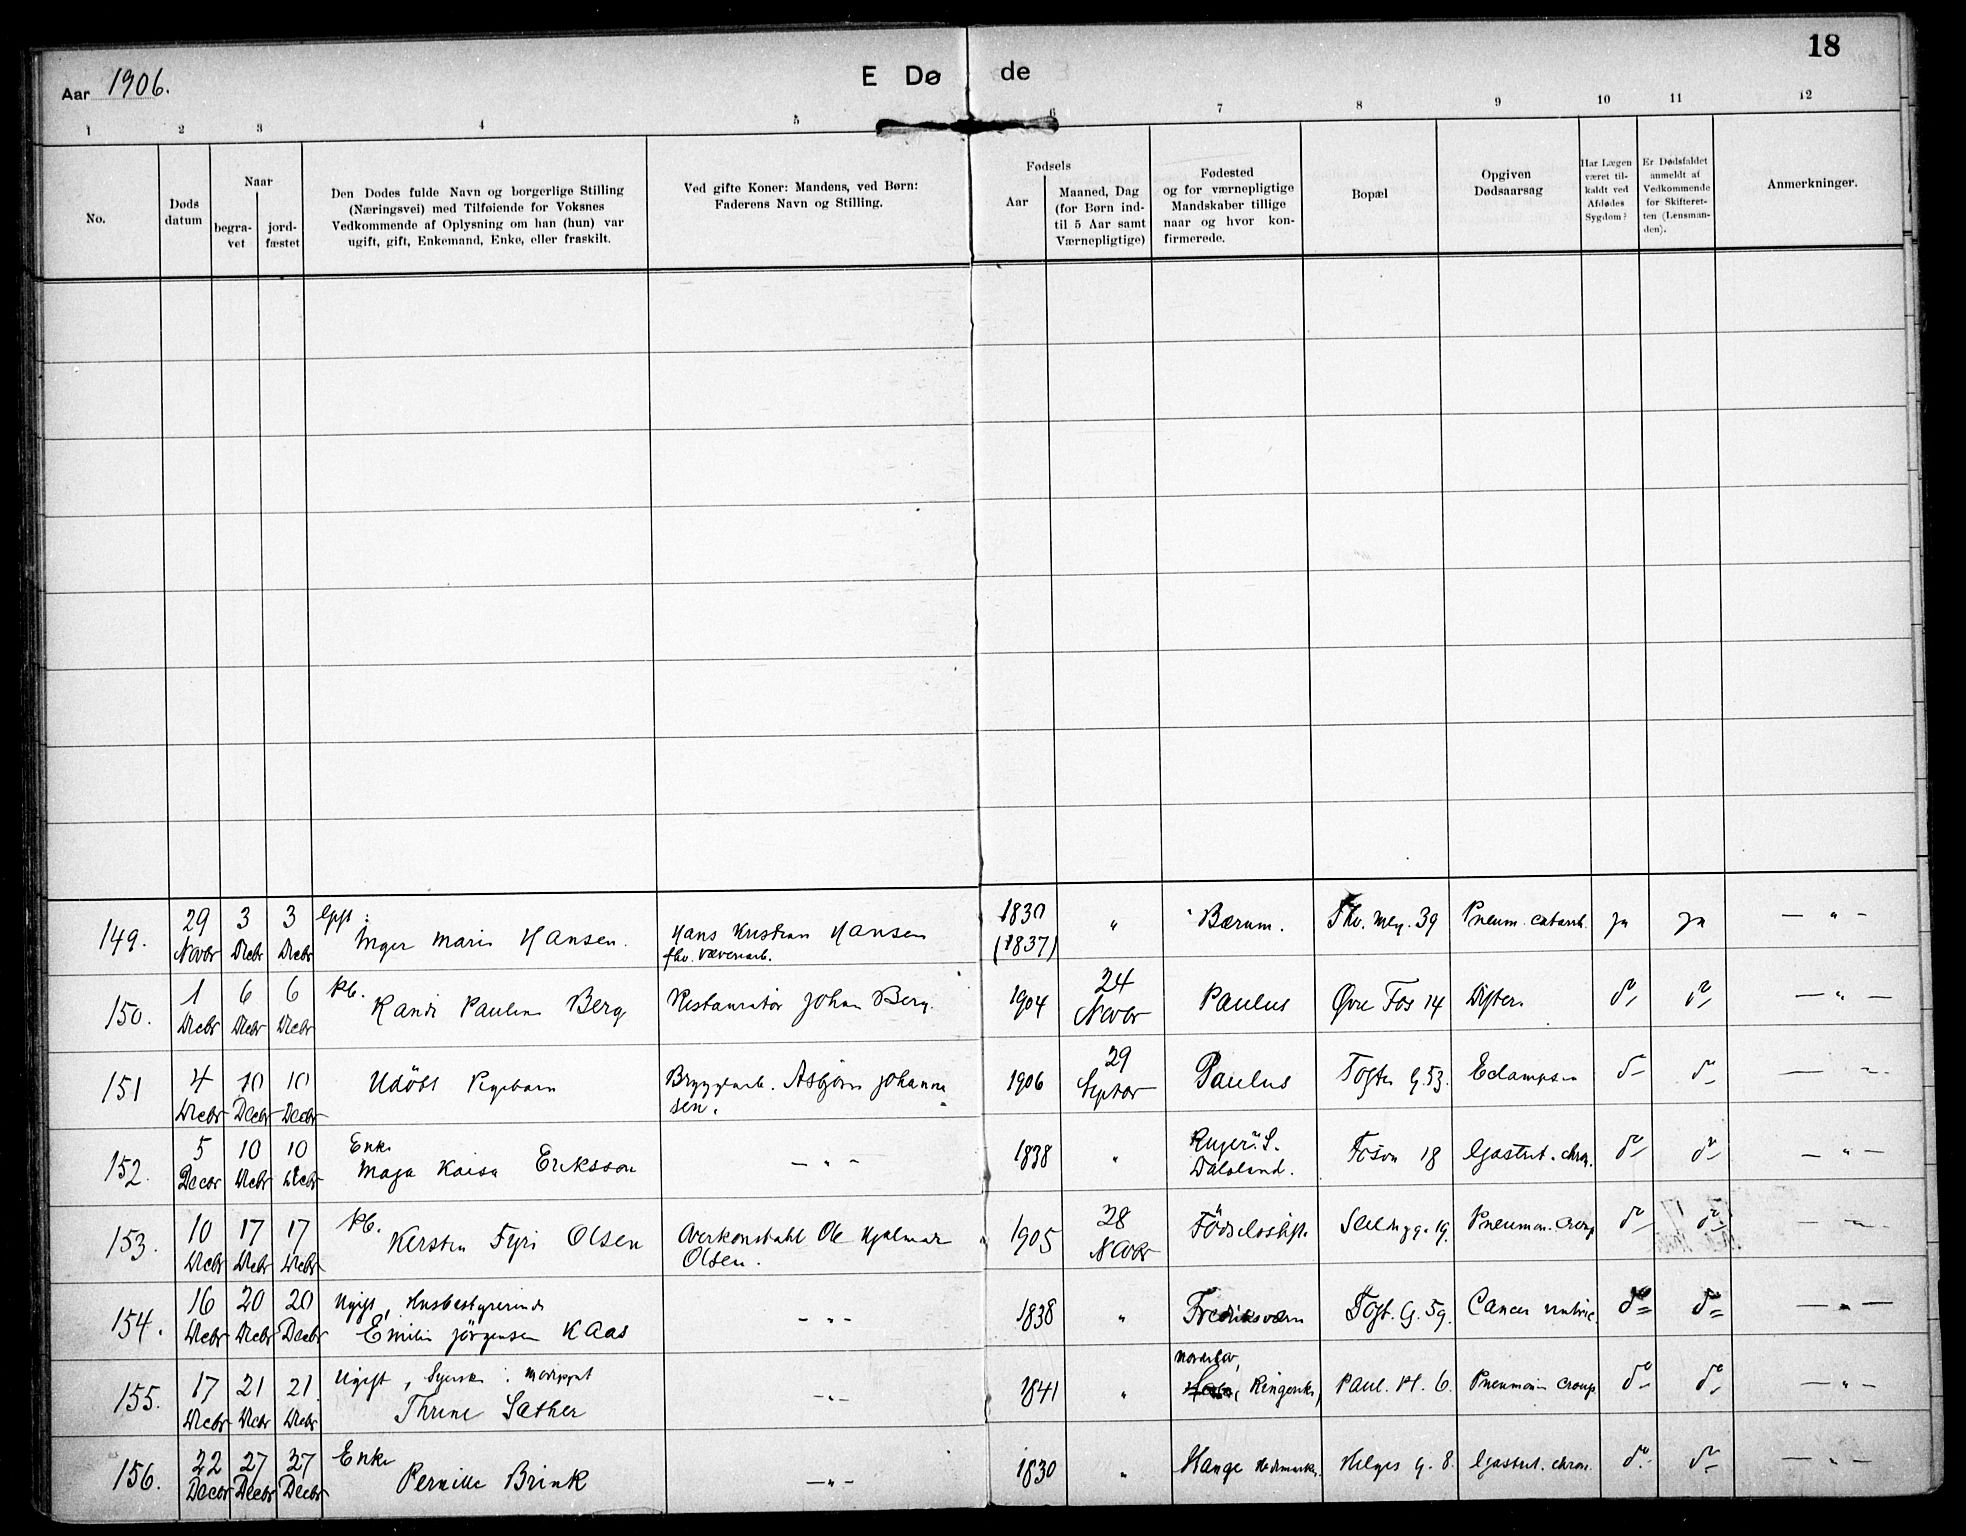 18
Aar 1906.
E Dø de
1 2 3 4 5 6 7 8 9 10 11 12
No.
Døds datum
Naar
begra-vet
jord-fæstet
Den Dødes fulde Navn og borgerlige Stilling
(Næringsvei) med Tilføiende for Voksnes
Vedkommende af Oplysning om han (hun) var
ugift, gift, Enkemand, Enke, eller fraskilt.
Ved gifte Koner: Mandens, ved Børn:
Faderens Navn og Stilling.
Fødsels
Aar
Maaned, Dag
(for Børn ind-
til 5 Aar samt
Værnepligtige)
Fødested
og for værnepligtige
Mandskaber tillige
naar og hvor kon-
firmerede.
Bopæl
Opgiven
Dødsaarsag
Har Lægen
været til-
kaldt ved
Afdødes
Sygdom?
Er Dødsfaldet
anmeldt af
Vedkommende
for Skifteret-
ten (Lensman-
den).
Anmerkninger.
149. 29 Novbr 3 Decbr 3 Decbr Inger Marie Hansen. Hans Kristian Hansen 1830 (1837) " Bærum. 39 Pneum. catarrh. ja ja — " —
150. 1 Decbr 6 Decbr 6 Decbr Pb. Randi Pauline Berg Restauratør Johan Berg. 1904 24 Novbr Paulus Øvre Fos 14 Difteri do do — " —
151 4 Decbr 10 Decbr 10 Decbr Udöbt Pigebarn Bryggearb. Asbjörn Johannesen. 1906 29 Septbr Paulus Fogter G. 53. Eclampsi do do — " —
152. 5 Decbr 10 Decbr 10 Decbr Enke Maja Kaisa Eriksson — " — 1838 " Dalsland. Fossv 18 Gastrit. chron. do do — " —
153. 10 Decbr 17 Decbr 17 Decbr Pb. Kersten Fyri Olsen Overkonstabl Ole Hjalmar Olsen. 1905 28 Novbr Födselsstift. 19. Pneumon. Croup do do — " —
154. 16 Decbr 20 Decbr 20 Decbr Ugift, Husbestyrerinde Emilie Jörgensen Kaas — " — 1838 " Fredriksværn Fogt. G. 59. Cancer ventric. do do — " —
155. 17 Decbr 21 Decbr 21 Decbr Ugift, Syerske Thrine Sæther — " — 1841 " Norderhov, Ringerike, Paul. Pl. 6. Pneumoni Croup do do — " —
156. 22 Decbr 27 Decbr 27 Decbr Enke Pernille Brink — " — 1830 " Stange Hedmarken. Helges G. 8. Gastrit. chron. do do — " —